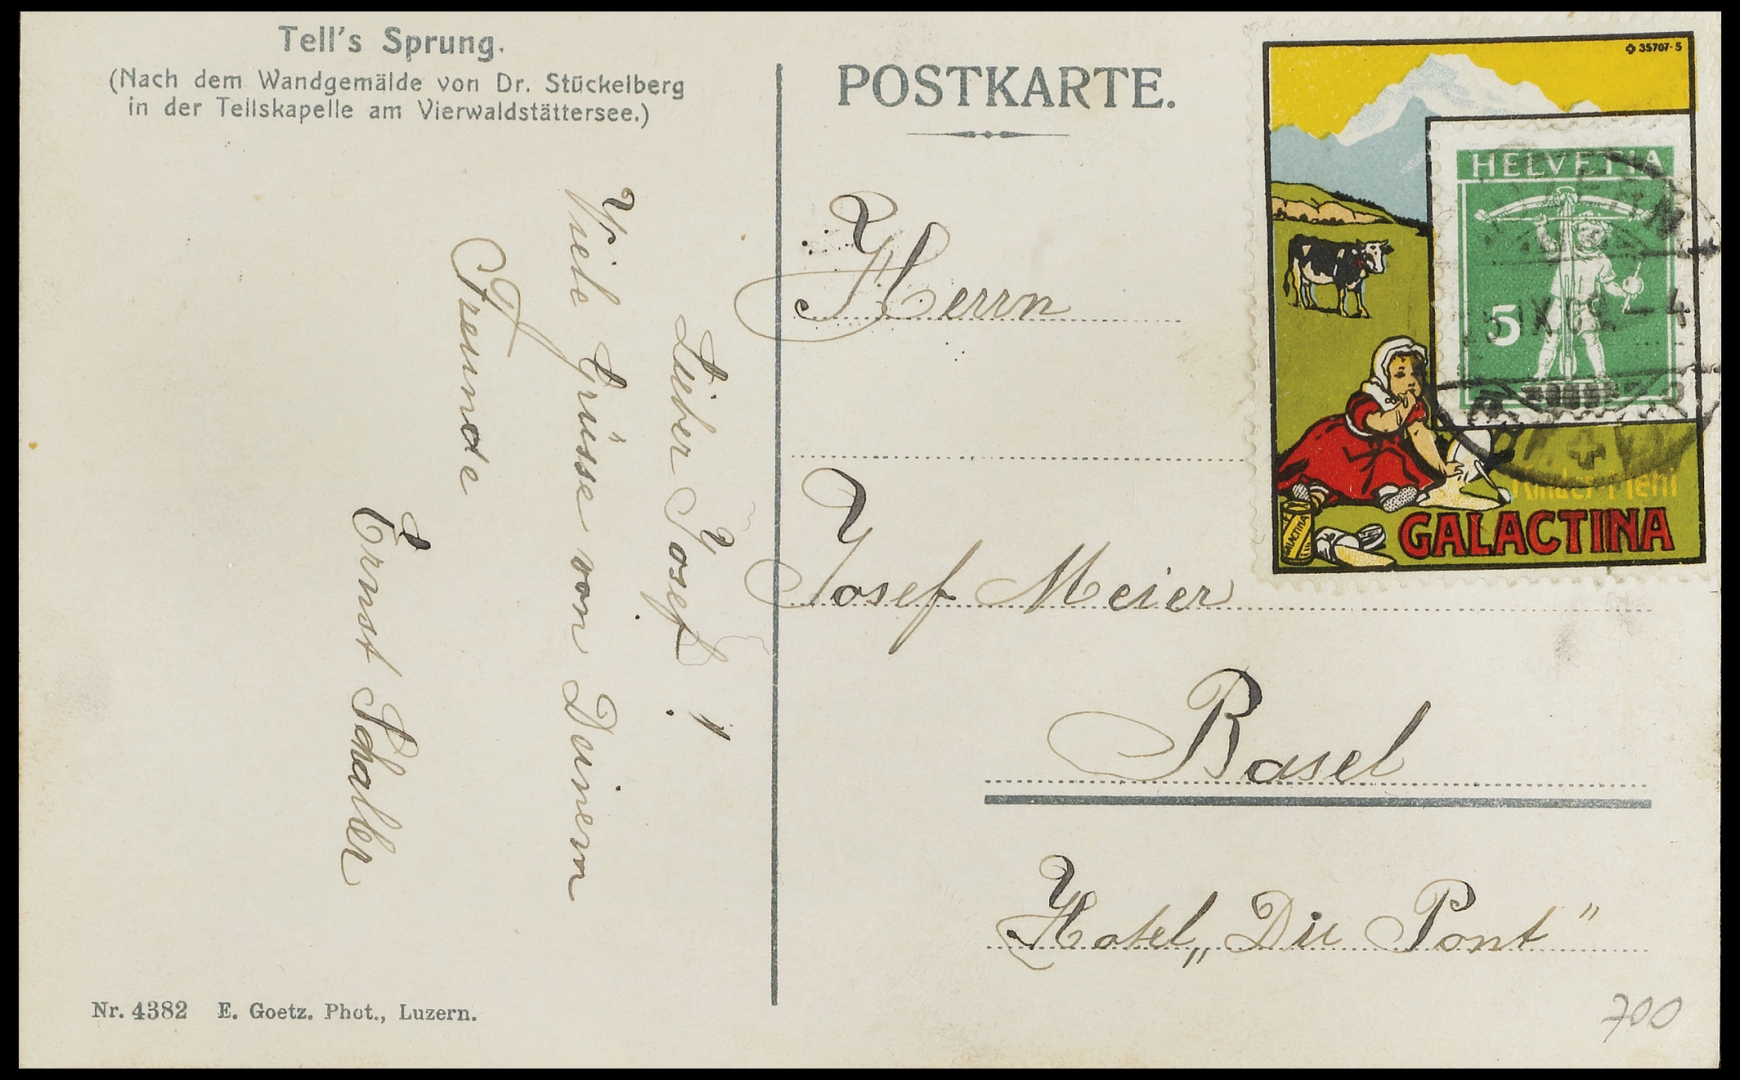 Tell's Sprung.
(Nach dem Wandgemälde von Dr. Stückelberg
in der Tellskapelle am Vierwaldstättersee.)
Lieber Josef!
Viele Grüsse von Deinem
Freunde
Ernst Schaller
Nr. 4382 E. Goetz. Phot., Luzern.
POSTKARTE.
35707·5
HELVETIA
5
IX
-4
Kinder-Mehl
GALACTINA
GALACTINA
Herrn
Josef Meier
Basel
Hotel „Du Pont"
700